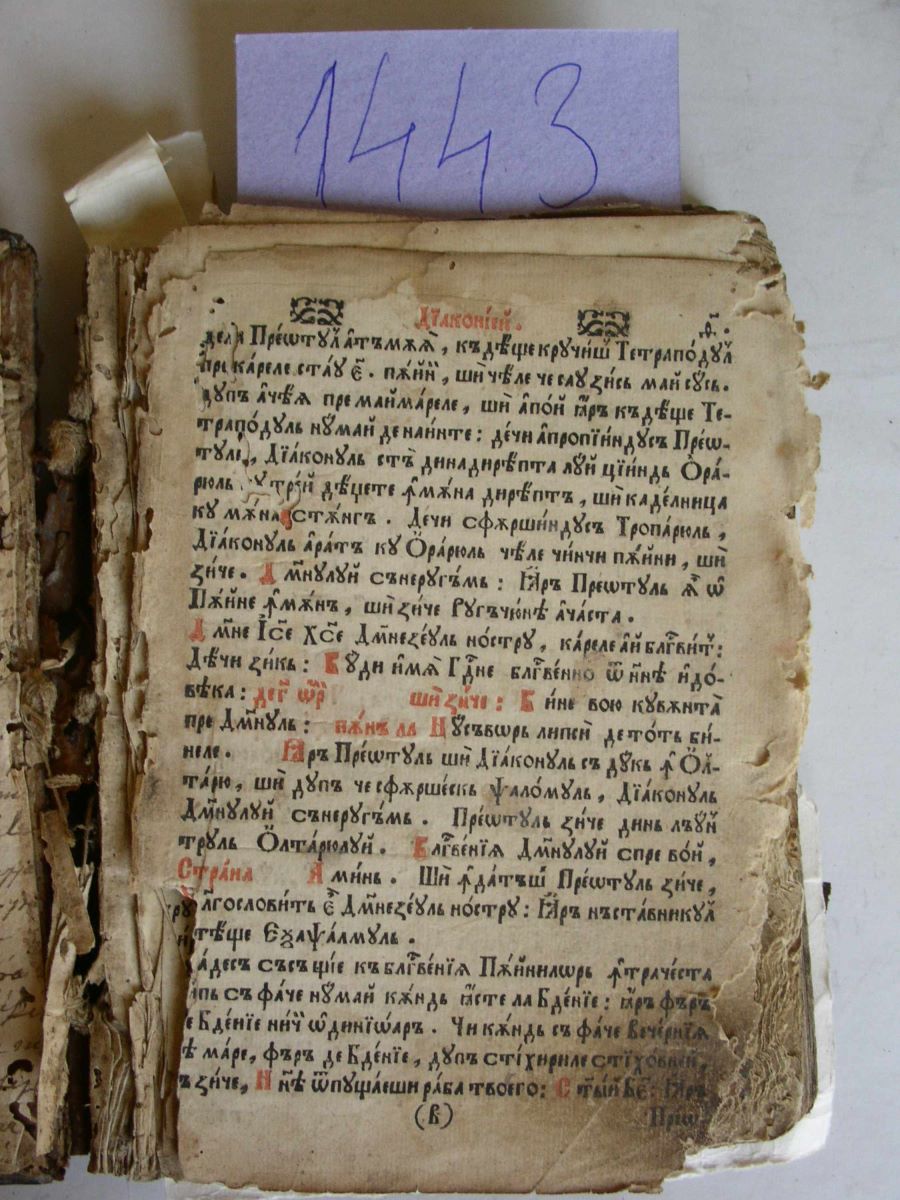 1443
Дїаконїей. ф҃.
Преѡтꙋл ꙟтъмѫѧ, къдѣще крꙋчиш Тетраподꙋл
кареле стаꙋ є҃. пѫйй, ши чѣле че саꙋ зись май сꙋсь.
дꙋпъ ачѣѧ пре май мареле, ши апой ꙗръ къдѣще Те-
траподꙋль нꙋмай де наинте: дечи апропїиндꙋсъ Преѡ-
Дїаконꙋль стъ динадирѣпта лꙋй цїиндь Ѻра-
рюль трей дѣцете ꙟмѫна дирѣптъ, ши каделница
кꙋ мѫна стѫнгъ. Дечи сфѫршиндꙋсъ Тропарюль,
Дїаконꙋль аратъ кꙋ Ѻрарюль чѣле чинчи пѫйни, ши
зиче. Дмнꙋлꙋй сънерꙋгъмь: Ꙗръ Преѡтꙋль ꙗ ѡ
Пѫйне ꙟмѫнъ, ши зиче Рꙋгъчюнѣ ачаста.
Дмне Іс҃е Хс҃е Дмнезеꙋль нострꙋ, кареле ай блгвит:
Дѣчи зикь: Бꙋди имѧ Гдне блгвенно ѿ ннѣ и до-
вѣка: ши зиче: Бине вою кꙋвѫнта
пре Дмнꙋль: пѫнъ ла Нꙋсъворь липси де тоть би-
неле. Ꙗръ Преѡтꙋль ши Дїаконꙋль съ дꙋкь ꙟ Ѻл-
тарю, ши дꙋпъ че сфѫршескь Ѱаломꙋль, Дїаконꙋль
Дмнꙋлꙋй сънерꙋгъмь. Преѡтꙋль зиче динь лъꙋн
трꙋль Ѻлтарюлꙋй. Блгвенїѧ Дмнꙋлꙋй спре вой,
Страна Аминь. Ши ꙟдатъш Преѡтꙋль зиче,
лгословить є Дмнезеꙋль нострꙋ: Ꙗръ нъставникꙋл
тѣще Еѯаѱалмꙋль.
адесъ съсъщїе къ блгвенїѧ Пѫйнилѡрь ꙟтрачеста
съ фаче нꙋмай кѫндь ꙗсте ла Бденїе: ꙗръ фъръ
е Бденїе нич ѡдиниѡаръ. Чи кѫндь съ фаче вечернїѧ
маре, фъръ де Бденїе, дꙋпъ стїхириле стїховней,
зиче, Ннѣ ѿпꙋщаеши раба твоего: Стый Бе: Ꙗръ
(в)
Преѡ-